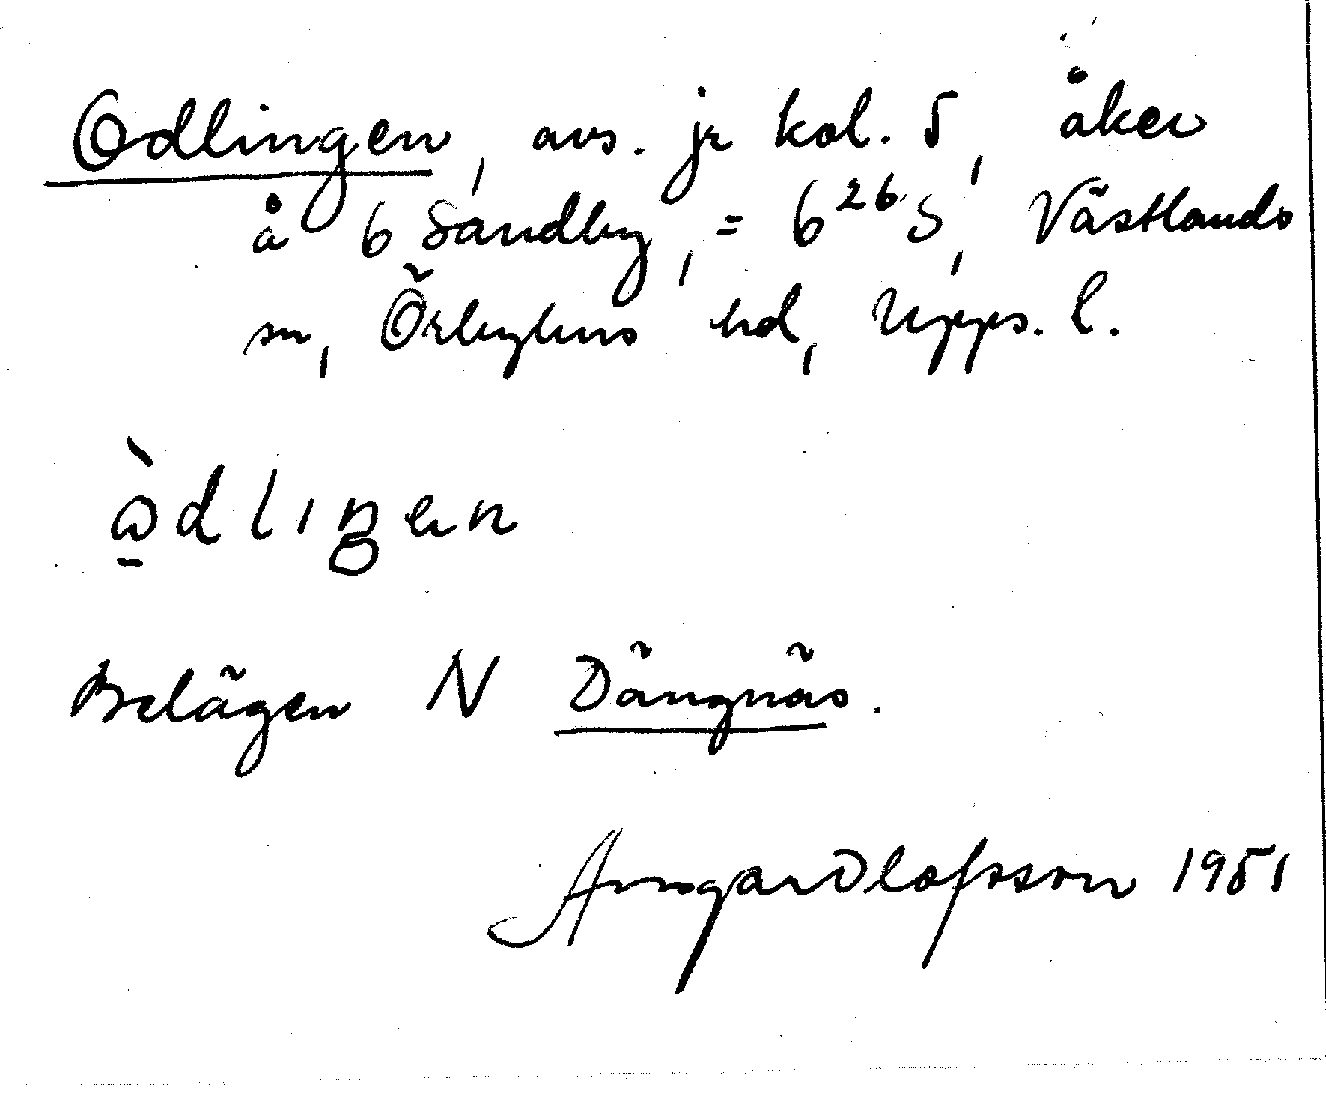 Odlingen, avs. jr kol. 5, åker
å 6 Sandby, = 6²⁶ S, Västlands
sn, Örbyhus hd, Upps. l.
ὼ̱dlıŋen
Belägen N Dängnäs.
Olofsson 1951